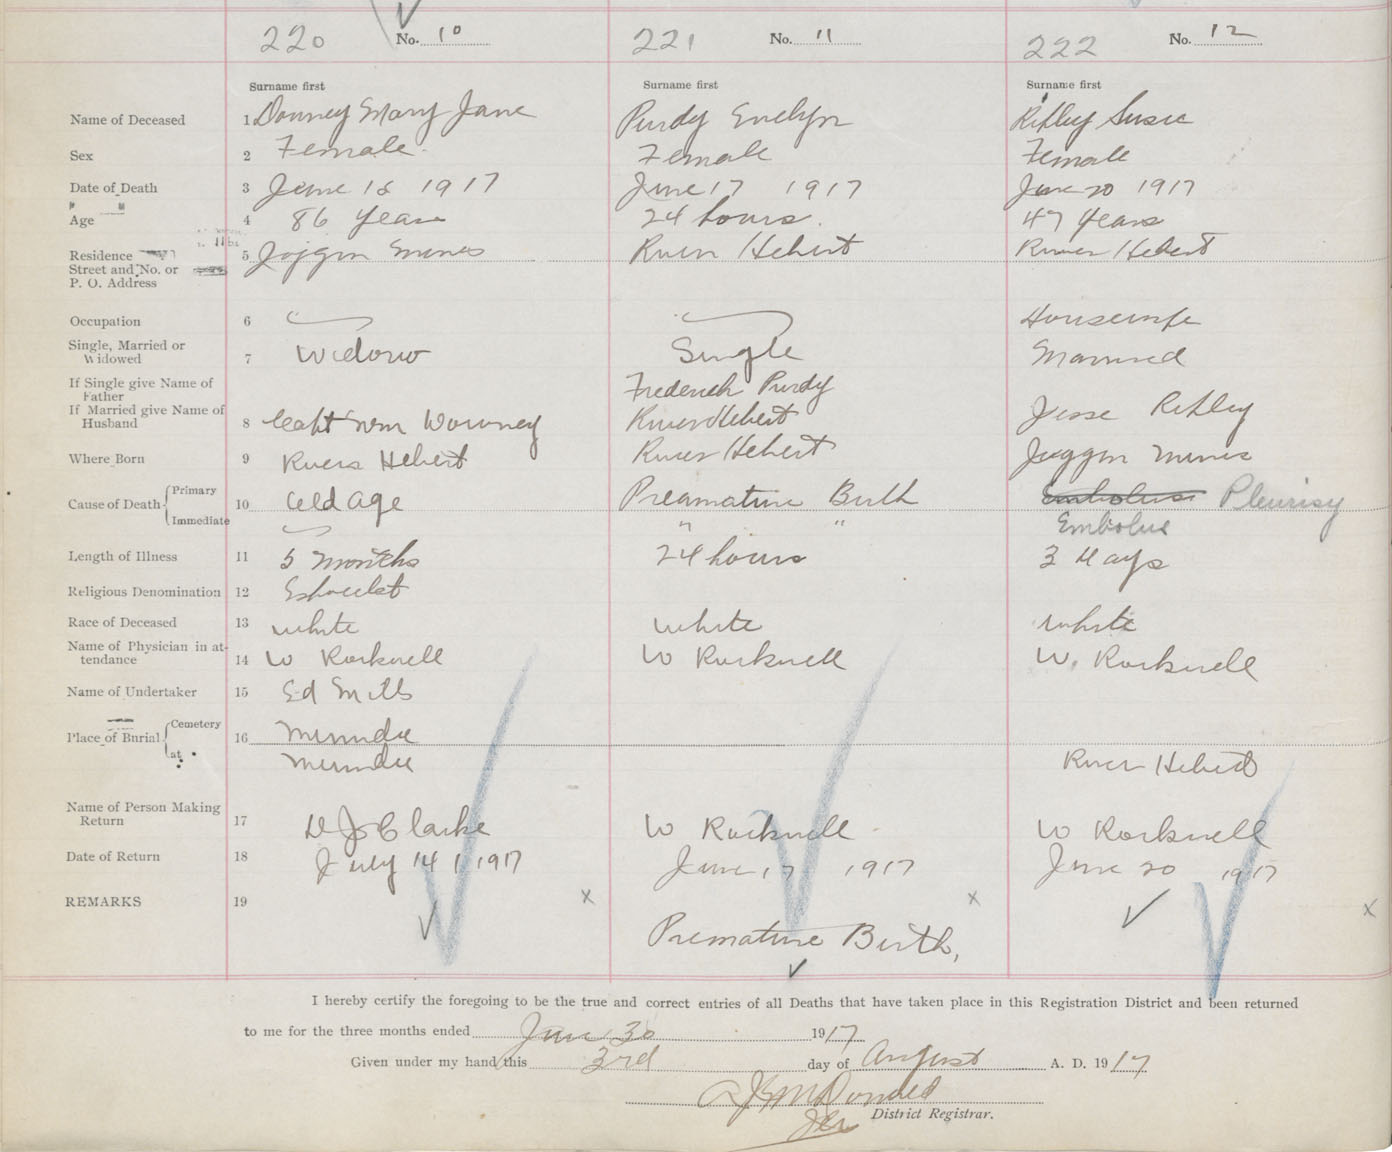 220 No. 10 221 No. 11 222 No. 12
Surname first Surname first Surname first
Name of Deceased 1 Downey Mary Jane Purdy Evelyn Ripley Susie
Sex 2 Female Female Female
Date of Death 3 June 18 1917 June 17 1917 June 20 1917
Age 4 86 years 24 hours. 47 years
Residence 5 Joggin Mines River Hebert River Hebert
Street and No. or
P. O. Address
Occupation 6 Housewife
Single, Married or
Widowed 7 Widow Single Married
If Single give Name of
Father Frederick Purdy
If Married give Name of
Husband 8 Capt Wm Downey River Hebert Jesse Ripley
Where Born 9 River Hebert River Hebert Joggin Mines
Cause of Death Primary 10 Old Age Preamature Birth Embolus Pleurisy
Immediate " " Embolus
Length of Illness 11 5 months 24 hours 3 days
Religious Denomination 12
Race of Deceased 13 white white white
Name of Physician in at-
tendance 14 W Rockwell W Rockwell W. Rockwell
Name of Undertaker 15 Ed Mills
Place of Burial Cemetery 16 Minudie
at Minudie River Hebert
Name of Person Making
Return 17 Clarke W Rockwell W Rockwell
Date of Return 18 July 14 1917 June 17 1917 June 20 1917
REMARKS 19 x x x
Premature Birth,
I hereby certify the foregoing to be the true and correct entries of all Deaths that have taken place in this Registration District and been returned
to me for the three months ended June 30 1917
Given under my hand this 3rd day of August A. D. 1917
McDonald
District Registrar.